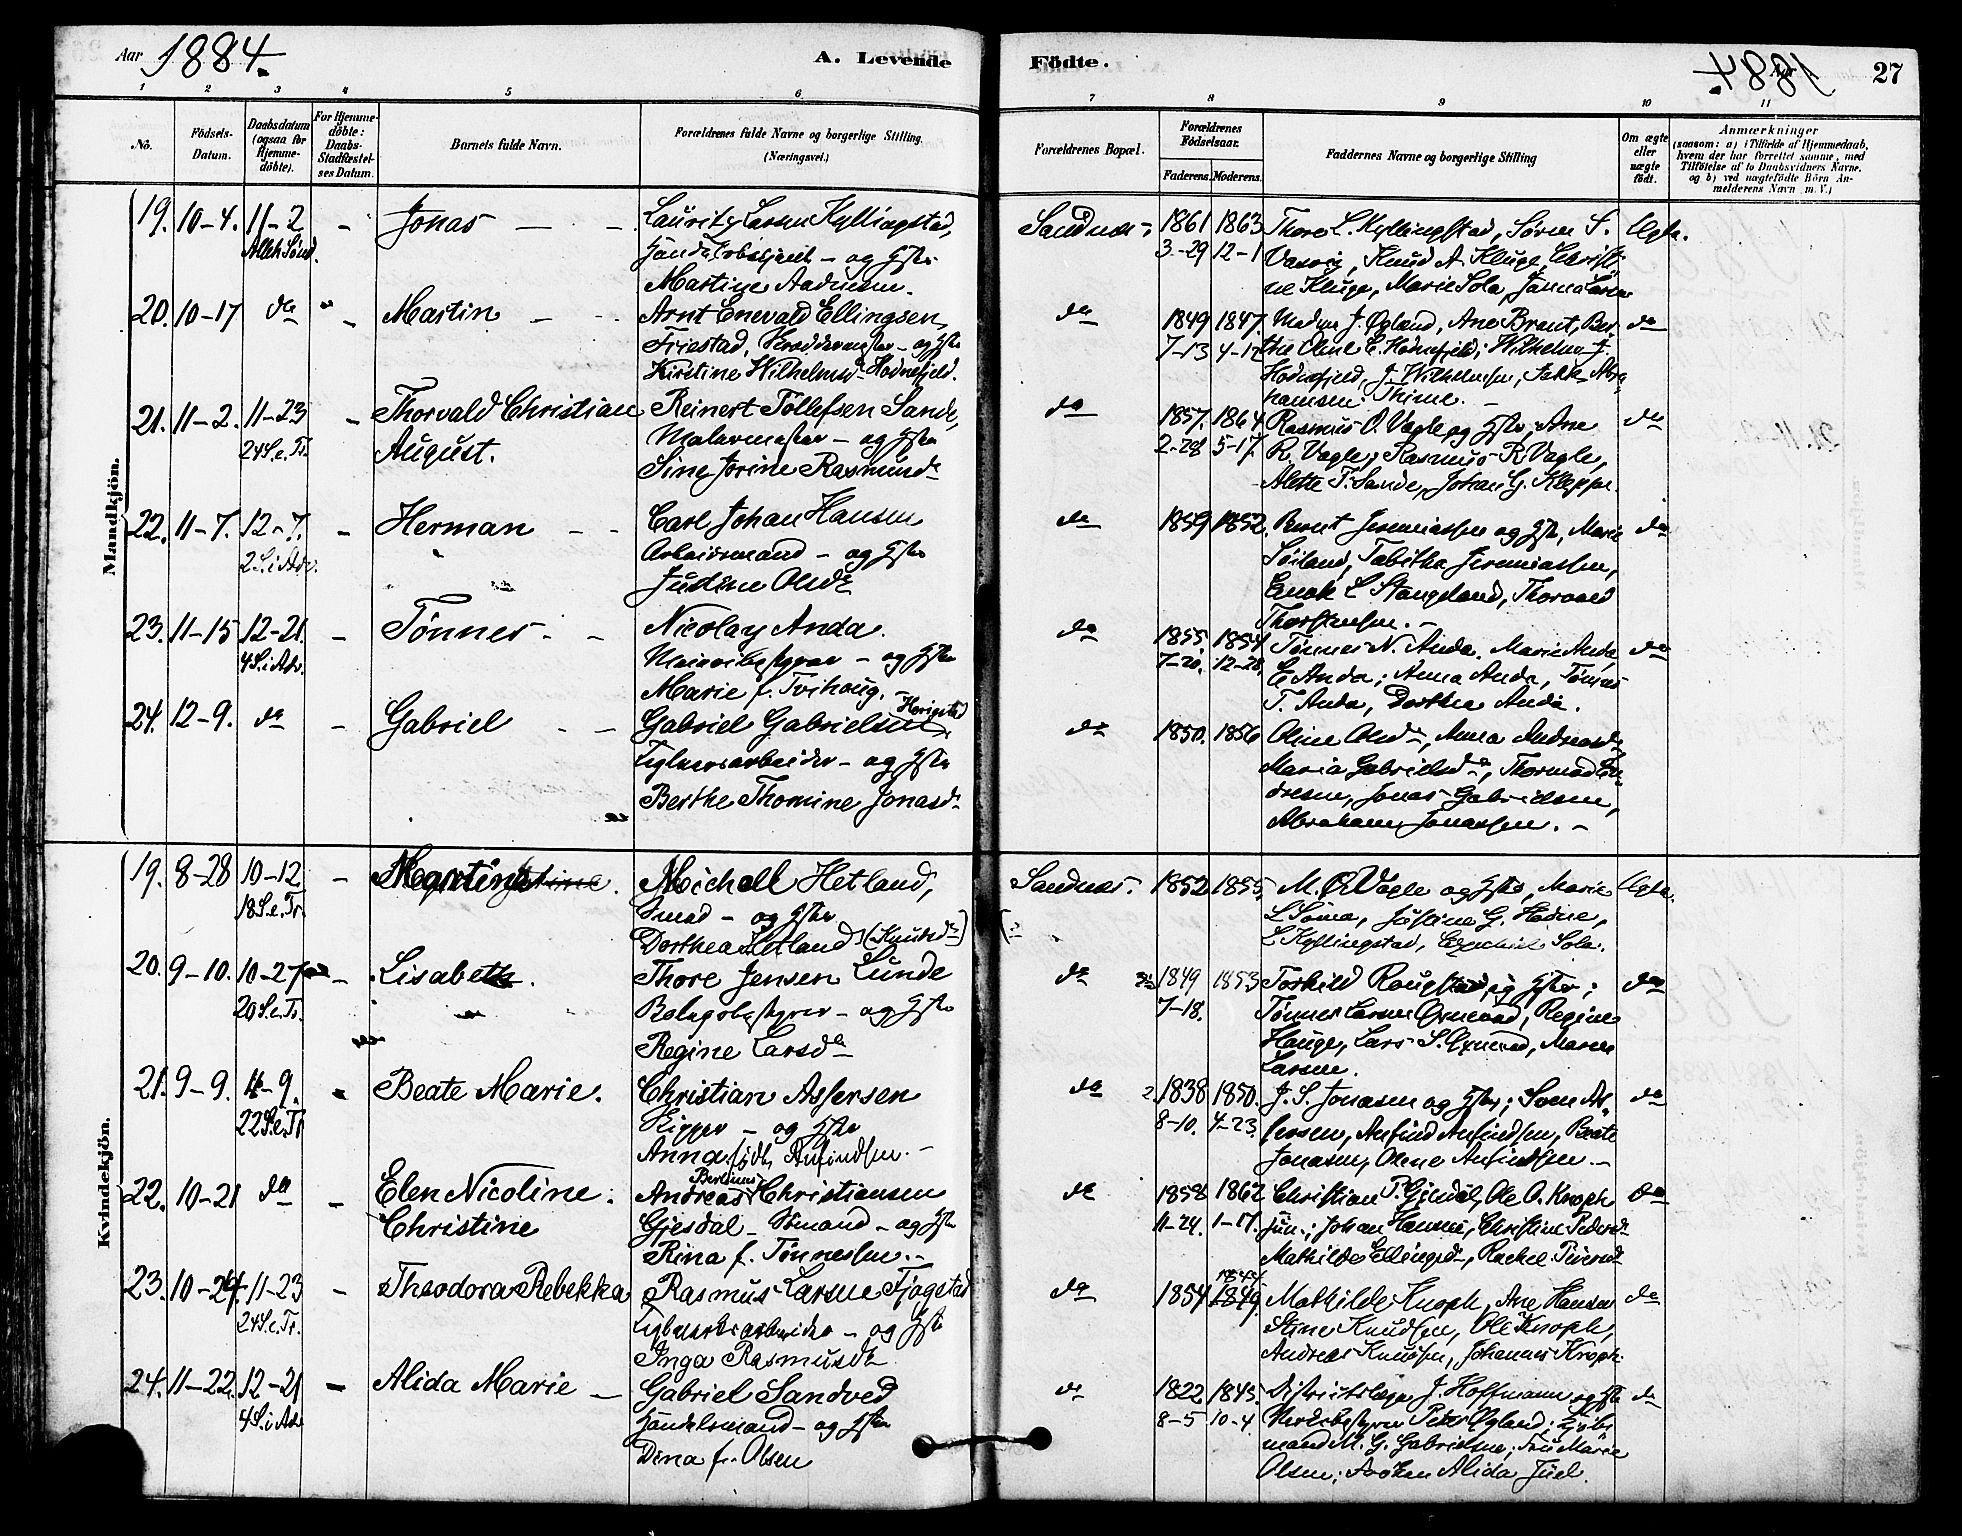 Aar 1884.
A. Levende
Födte.
1884.
27
1 2 3 4 5 6 7 8 9 10 11
No.
Födsels-
Datum.
Daabsdatum
(ogsaa for
Hjemme-
döbte).
For Hjemme-
döbte:
Daabs-
Stadfæstel-
ses Datum.
Barnets fulde Navn.
Forældrenes fulde Navne og borgerlige Stilling
(Næringsvei.)
Forældrenes Bopæl.
Forældrenes
Födselsaar.
Faderens. Moderens.
Faddernes Navne og borgerlige Stilling
Om ægte
eller
uægte
født.
Anmærkninger
(saasom: a) i Tilfælde af Hjemmedaab,
hvem der har forrettet samme, med
Tilföielse af to Daabsvidners Navne.
og b) ved uægtefödte Börn An-
melderens Navn m. V.)
Mandkjön.
19. 10-4. 11-2 - Jonas
Lauritz Larsen Kyllingstad,
og Hstr
Martine
Sandnes 1861 1863
3-29 12-1
Thore L. Kyllingstad, Sören S.
Vasvig, Knud A. Kluge, Christi-
ne Kluge, Marie Sola, Larsen
Ægte.
20. 10-17 do - Martin
Arnt Enevald Ellingsen
Friestad, - og Hstr
Kirstine Wilhelmsd. Hodnefjeld.
do 1849 1847
7-13 4-12
J. Øgland, Ane Brent, Ber-
the Oline E. Hodnefjeld; Wilhelm J.
Hodnefjeld, J. Wilhelmsen, Abra
hamsen Thime.
do
21. 11-2. 11-23 - Thorvald Christian
24 S.e.Tr. August.
Reinert Tollefsen Sande,
Malermester - og Hstr
Sine Jorine Rasmusd.
do 1857. 1864
2-28 5-17.
Rasmus O. Vagle og Hstr, Ane
R. Vagle, Rasmus R. Vagle,
Alette T. Sande, Johan G. Kleppe.
do
22. 11-7. 12-7. - Herman
2 S.i Adv.
Carl Johan Hansen
Arbeidsmand - og Hstr
Olsd.
do 1859 1852.
Berent Jeremiassen og Hstr, Marie
Söiland, Tabitha Jeremiassen,
Enok L Stangeland, Thorvald
Thorstensen.
do
23. 11-15 12-21 - Tønnes
4 S.i Adv.
Nicolay Anda.
- og Hstr
Marie f. Tvihoug.
do 1855. 1854
7-20. 12-28
Tønnes N. Anda. Marie Anda,
E. Anda; Anna Anda, Tønnes
T. Anda, Dorthea Anda.
do
24. 12-9. do - Gabriel
Gabriel Gabrielsen Hovigstad
Teglværksarbeider - og Hstr
Berthe Thomine Jonasd.
do 1850. 1856
Oline Olsd., Anna Andreasd.
Maria Gabrielsd., Thormod En-
dresen, Jonas Gabrielsen,
Abraham Jonassen.
Kvindekjön.
19. 8-28 10-12 -
18 S.e.Tr.
Michael Hetland,
Smed - og Hstr
Dorthea Hetland (Knutsd.)
Sandnes. 1852 1855
M. O. Vagle og Hstr, Marie
L Soma, Justine G. Hodne,
L Kyllingstad, Sola.
Ægte.
20. 9-10. 10-27 - Lisabeth.
20 S.e.Tr.
Thore Jensen Lunde
Bolagsbestyrer - og Hstr
Regine Larsd.
do 1849 1853
7-18.
Torkild Raugstad og Hstr;
Tønnes Larsen, Regine
Hauge, Lars S.
Larsen.
do
21. 9-9. 11-9. - Beate Marie.
22 S.e.Tr.
Christian Assersen
Skipper - og Hstr
Anna født Anfindsen.
do 1838 1850.
8-10. 4-23.
J. S. Jonasen og Hstr; Sven As-
sersen, Anfind Anfindsen, Beate
Jonasen, Oline Anfindsen.
do
22. 10-21 do - Elen Nicoline
Christine
Andreas Bertinus Christiansen
Gjesdal - Sømand - og Hstr
Rina f. Tønnessen.
do 1858 1862
11-24. 1-17.
Christian P. Gjesdal, Ole O. Kroph
jun.; Johan Hansen, Christine Pedersd.
Mathilde Ellingsd., Rachel
do
23. 10-24 11-23 - Theodora Rebekka
24 S.e.Tr.
Rasmus Larsen Fjogstad
Teglværksarbeider - og Hstr
Inga Rasmusd.
do 1854 1844
1849.
Mathilde Kroph, Ane Hansen
Stine Knudsen, Ole Kroph,
Andreas Knudsen, Johannes Kroph.
do
24. 11-22. 12-21 - Alida Marie
4 S.i Adv
Gabriel Sandved
Handelsmand - og Hstr
Dina f. Olsen
do 1822 1845.
8-5 10-4
Distriktslæge J. Hoffmann og Hstr
Peter Øgland; Kjøb-
mand M. G. Gabrielsen; Fru Marie
Olsen; Frøken Alida Juel.
do